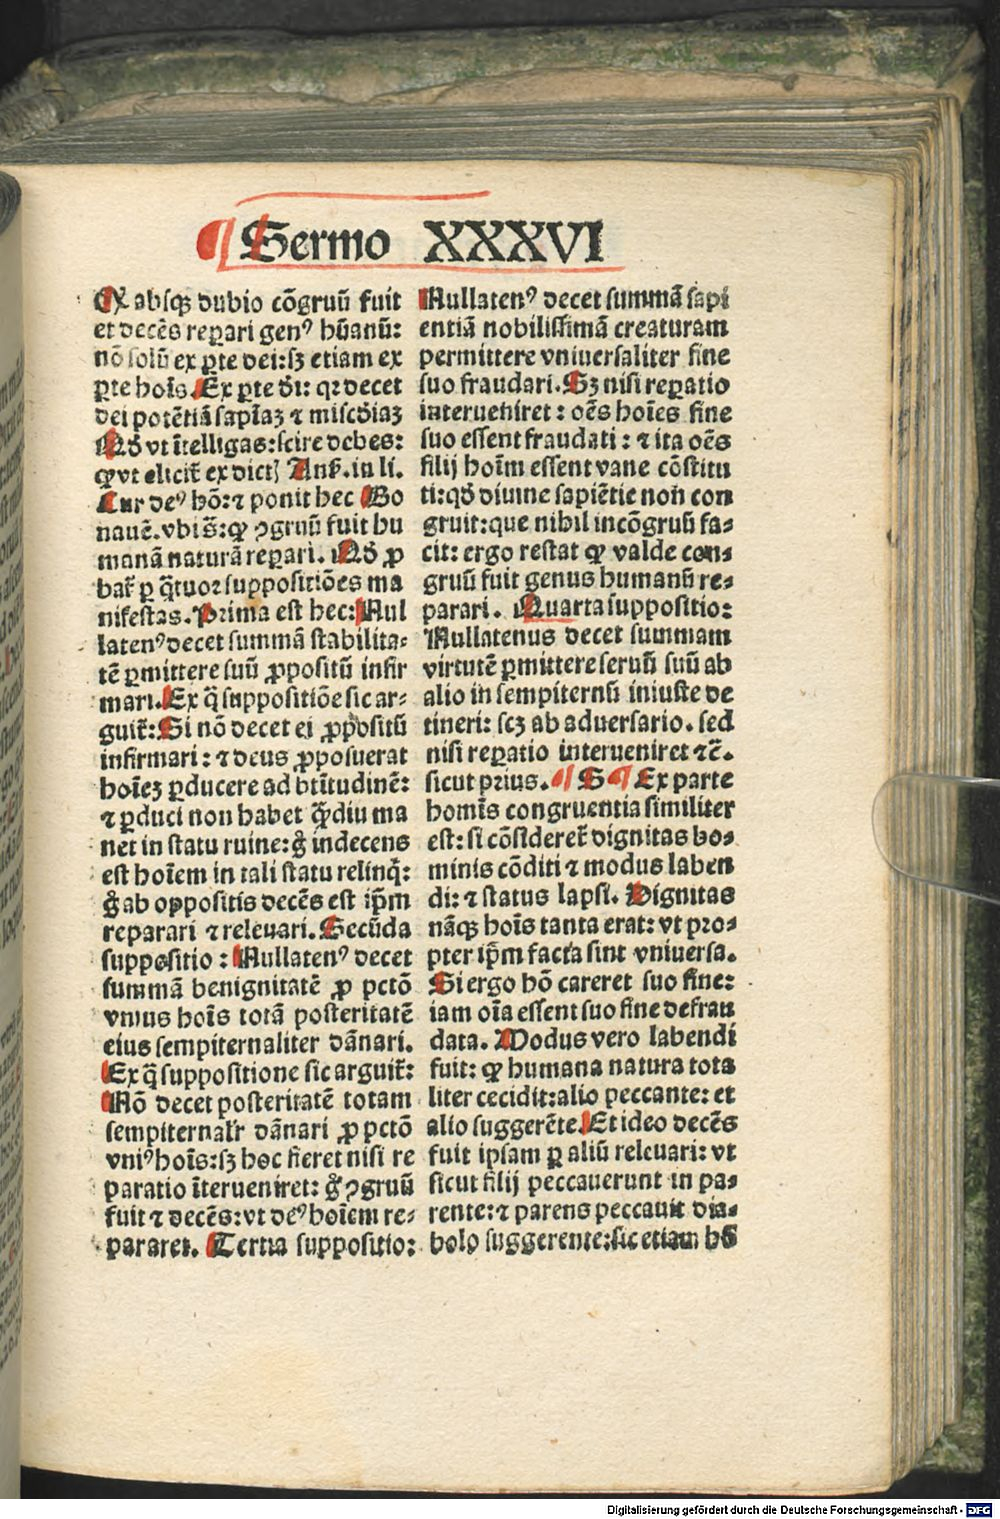 ¶ Sermo XXXVI
Qꝫ absqꝫ dubio cōgruū fuit
et decēs reꝑari genꝰ hūanū:
nō solū ex ꝑte dei: sꝫ etiam ex
ꝑte hoīs. Ex ꝑte dī: qꝛ decet
dei potētiā sapīaꝫ ⁊ miscdiaꝫ
Nō vt ītelligas: scire debes:
ꝙ vt elicit̄ ex dict Ans. in li.
Cur deꝰ hō: ⁊ ponit hec Bo
nauē. vbi s̄: ꝙ ꝯgruū fuit hu
manā naturā reꝑari. Nō ꝓ
bat̄ ꝑ q̄tuor suppositiōes ma
nifestas. Prima est hec: Nul
latenꝰ decet summā stabilita⸗
tē ꝑmittere suū ꝓpositū infir
mari. Ex q̄ suppositiōe sic ar⸗
guit̄: Si nō decet ei ꝓpositū
infirmari: ⁊ deus ꝓposuerat
hoīeꝫ ꝑducere ad btītudinē:
⁊ ꝑduci non habet q̄̄diu ma
net in statu ruine: g̊ indecens
est hoīem in tali statu relinq̄:
g̊ ab oppositis decēs est ip̄m
reparari ⁊ releuari. Secūda
suppositio: Nullatenꝰ decet
summā benignitatē ꝓ pctō
vnius hoīs totā posteritatē
eius sempiternaliter dānari.
Ex q̄ suppositione sic arguit̄:
Nō decet posteritatē totam
sempiternalr̄ dānari ꝓ pctō
vniꝰ hoīs: sꝫ hoc fieret nisi re
paratio īterueniret: g̊ ꝯgruū
fuit ⁊ decēs: vt deꝰ hoīem re⸗
pararet. Tertia suppositio:
Nullatenꝰ decet summā sapi
entiā nobilissimā creaturam
permittere vniuersaliter fine
suo fraudari. Sꝫ nisi reꝑatio
interueniret: oēs hoīes fine
suo essent fraudati: ⁊ ita oēs
filij hoīm essent vane cōstitu
ti: qd̄ diuine sapiētie non con
gruit: que nihil incōgruū fa⸗
cit: ergo restat ꝙ valde con⸗
gruū fuit genus humanū re⸗
parari. Quarta suppositio:
Nullatenus decet summam
virtutē ꝑmittere seruū suū ab
alio in sempiternū iniuste de
tineri: scꝫ ab aduersario. sed
nisi reꝑatio interueniret ⁊c̄.
sicut prius. ¶ S ¶ Ex parte
hominis congruentia similiter
est: si cōsideret̄ dignitas ho⸗
minis cōditi ⁊ modus laben
di: ⁊ status lapsi. Dignitas
nāqꝫ hoīs tanta erat: vt pro⸗
pter ip̄m facta sint vniuersa.
Si ergo hō careret suo fine:
iam oīa essent suo fine defrau
data. Modus vero labendi
fuit: ꝙ humana natura tota
liter cecidit: alio peccante: et
alio suggerēte. Et ideo decēs
fuit ipsam ꝑ aliū releuari: vt
sicut filij peccauerunt in pa⸗
rente: ⁊ parens peccauit dia⸗
bolo suggerente: sic etiam hō
Digitalisierung gefördert durch die Deutsche Forschungsgemeinschaft - DFG